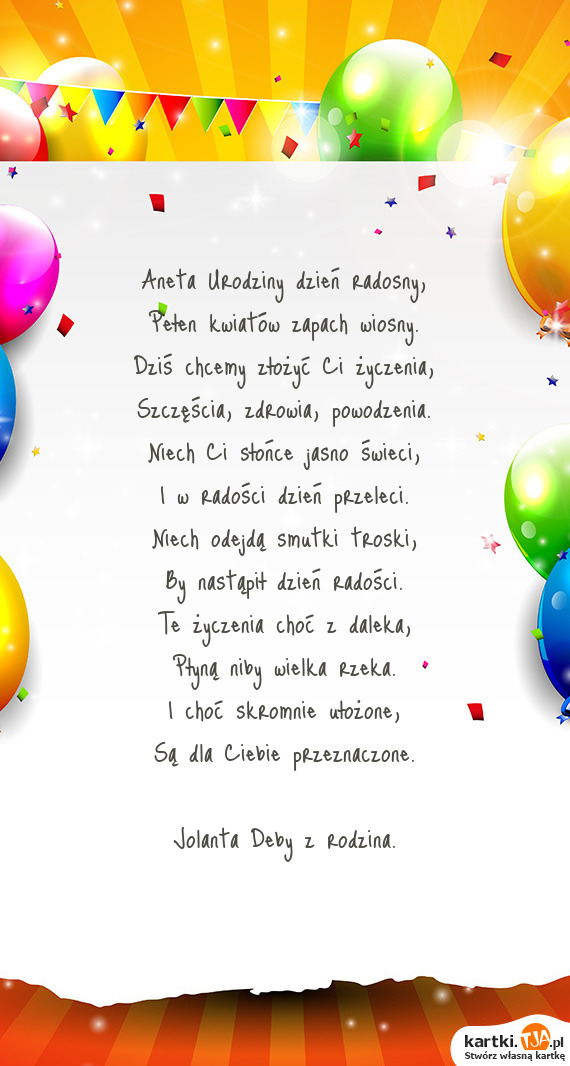 Aneta Urodziny dzień radosny,
Pełen kwiatów zapach wiosny.
Dziś chcemy złożyć Ci życzenia,
Szczęścia, zdrowia, powodzenia.
Niech Ci słońce jasno świeci,
I w radości dzień przeleci.
Niech odejdą smutki troski,
By nastąpił dzień radości.
Te życzenia choć z daleka,
Płyną niby wielka rzeka.
I choć skromnie ułożone,
Są dla Ciebie przeznaczone.
Jolanta Deby z rodzina.
kartki.TJA.pl
Stwórz własną kartkę